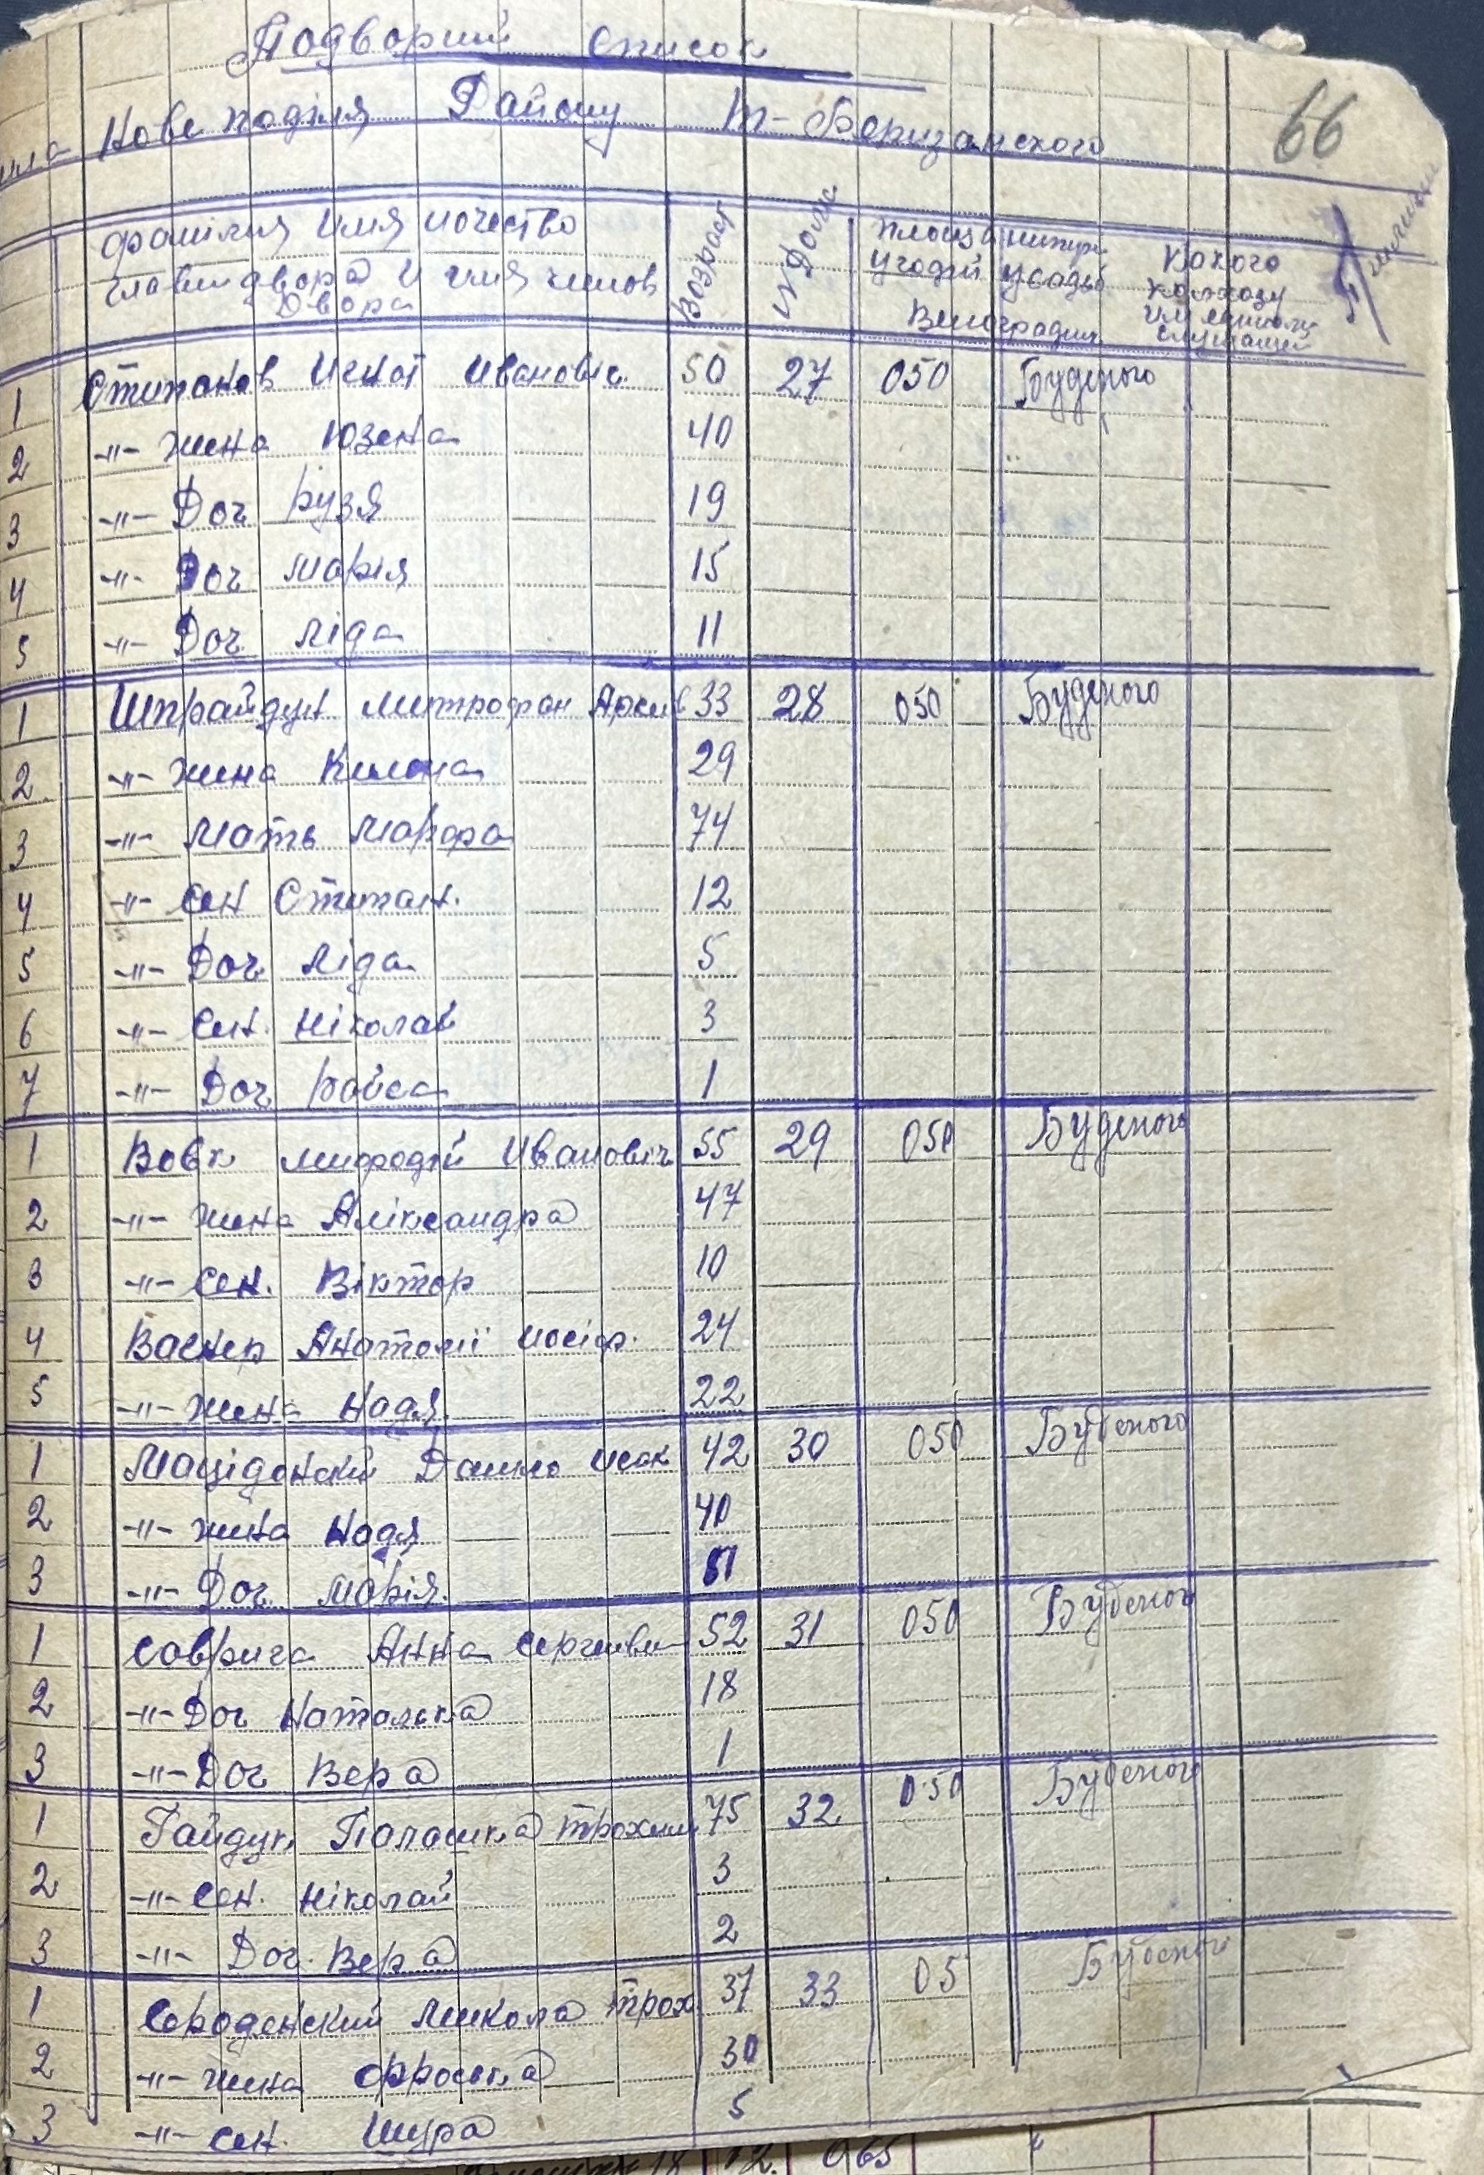 Подворий список
Нове поділля Району Т-Березанского
66
фамілия Имя иочество
главии двора и имя членов
Двора
Возраст
№ Двора
площа
угодій усадьб
Виноградник
Какого
колхозу
1 Стипанов Игнат Иванович 50 27 050 Буденого
2 -"- жена Юзена 40
3 -"- Доч Рузя 19
4 -"- Доч Марія 15
5 -"- Доч Ліда 11
1 Шпрайдун Митрофан 33 28 050 Буденого
2 -"- жина Килина 29
3 -"- Мать Марфа 74
4 -"- Сен Стипан. 12
5 -"- Доч Ліда 5
6 -"- Сен. Ніколай 3
7 -"- Доч Райса 1
1 Вовк Мифодій Иванович 55 29 050 Буденого
2 -"- жина Аліксандра 47
3 -"- Сен. Віктор 10
4 Васнер Анатолії иосіф. 24
5 -"- жина Надя. 22
1 Мацідонский Данило исак 42 30 050 Буденого
2 -"- жина Надя 40
3 -"- Доч Марія.
1 Саврига Анна 52 31 050 Буденого
2 -"- Доч Наталка 18
3 -"- Доч Вера 1
1 Гайдук Палашка Трохим 75 32 050 Буденого
2 -"- Сен. Ніколай 3
3 -"- Доч. Вера 2
1 Сороденский Микола Трох 37 33 05 Буденого
2 -"- жина Фроська 30
3 -"- Сен. Шура 5
12. 065